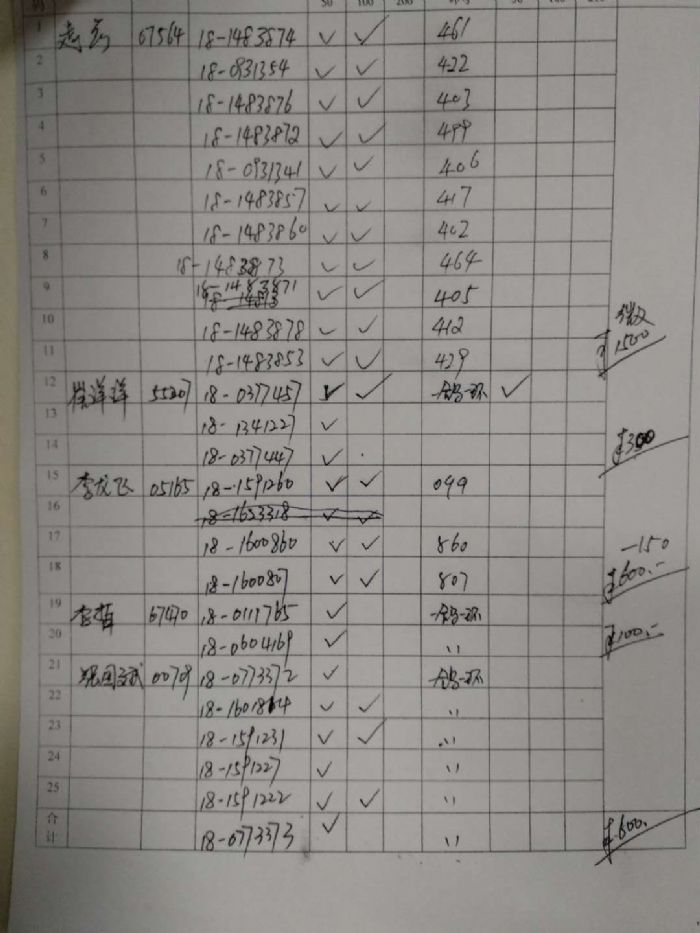 码 50 100 200
1 67564 18-1483874 ✓ ✓ 461
2 18-0931354 ✓ ✓ 422
3 18-1483876 ✓ ✓ 403
4 18-1483872 ✓ ✓ 499
5 18-0931341 ✓ ✓ 406
6 18-1483857 ✓ ✓ 417
7 18-1483860 ✓ ✓ 402
8 18-1483873 ✓ ✓ 464
9 18-1483871 ✓ ✓ 405
10 18-1483878 ✓ ✓ 412
11 18-1483853 ✓ ✓ 429 1500
12 崔洋洋 55207 18-0377457 ✓ ✓ ✓
13 18-1341227 ✓
14 18-0377447 ✓ 300
15 05165 18-1591260 ✓ ✓ 099
16 18-1653318 ✓ ✓
17 18-1600860 ✓ ✓ 860 -150
18 18-1600807 ✓ ✓ 807 600.-
19 67470 18-0117765 ✓
20 18-0604169 ✓ 〃 100.-
21 0079 18-0773372 ✓
22 ✓ ✓ 〃
23 18-1591231 ✓ ✓ 〃
24 18-1591227 ✓ 〃
25 18-1591222 ✓ ✓ 〃
合计 18-0773373 ✓ 〃 600.